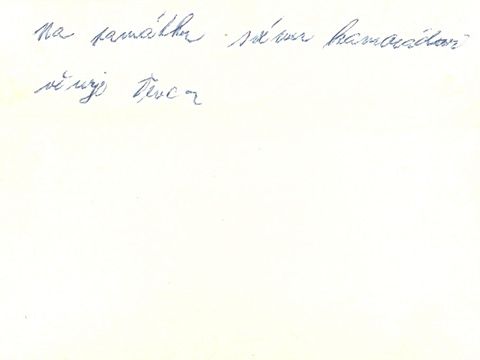 Na památku svému kamarádovi
věnuje